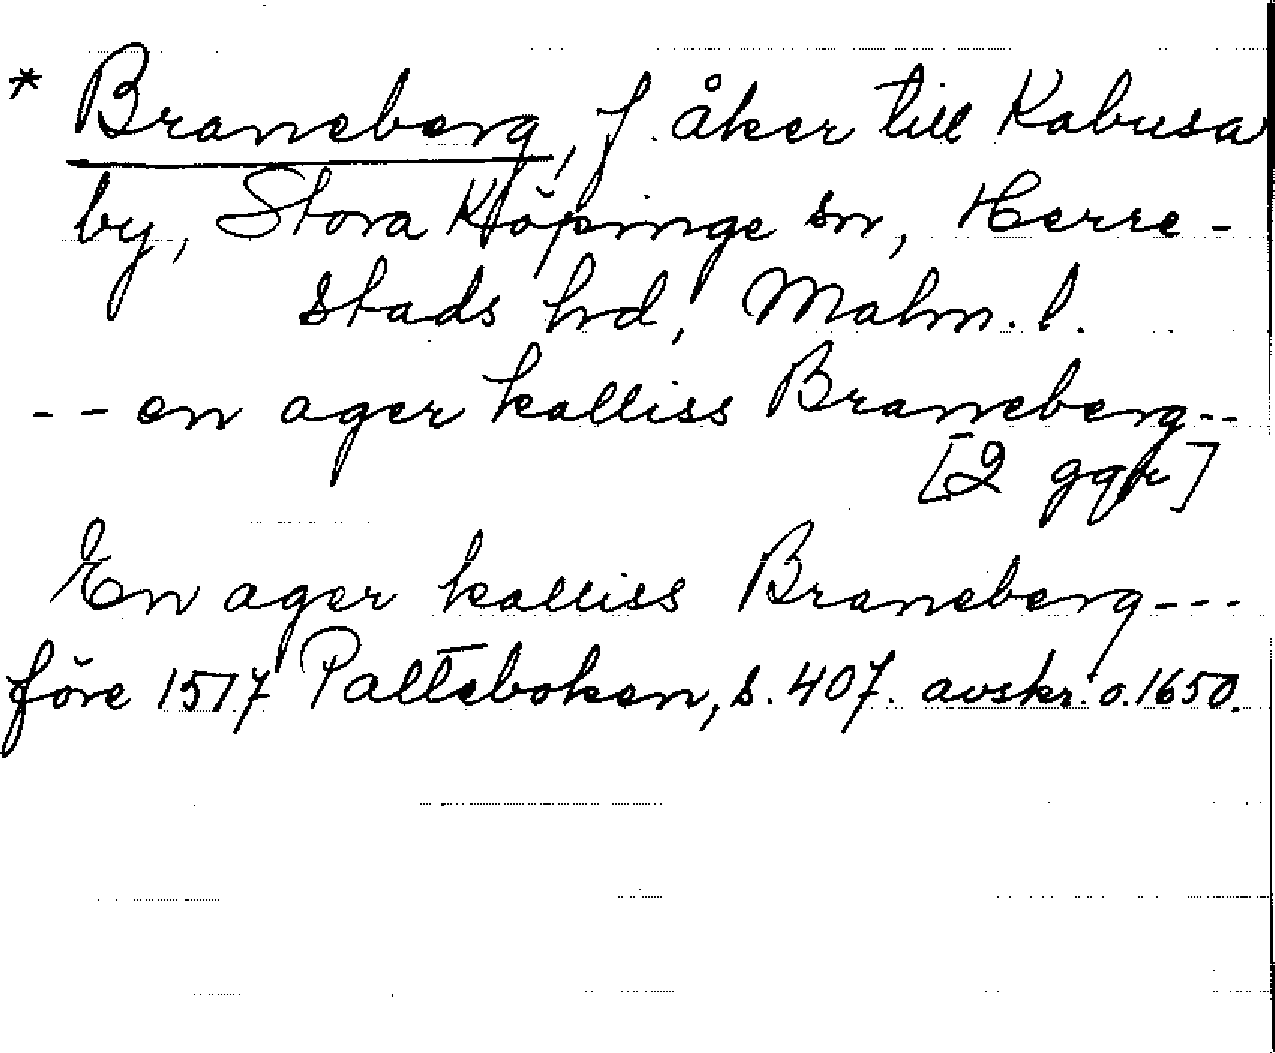 * Braneberg, f. åker till Kabusa
by, Stora Köpinge sn, Herre-
stads hrd, Malm. l.
-- en ager kalliss Braneberg--
[2 ggr]
En ager kalliss Braneberg---
före 1517 Palteboken, s. 407. avskr. o. 1650.